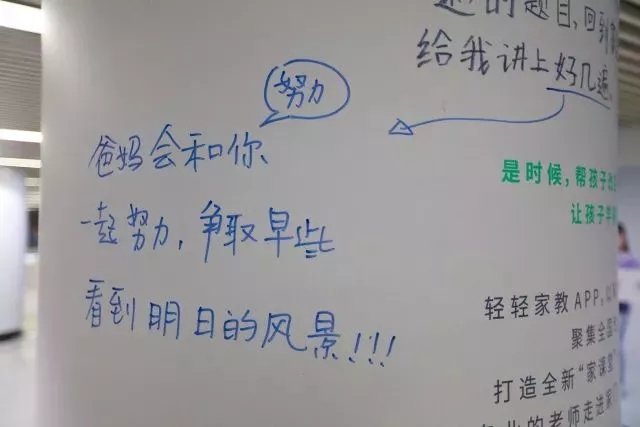 的题目，回到
给我讲上好几遍
努力
爸妈会和你
一起努力，争取早些
看到明日的风景！！！
是时候，帮孩子
让孩子
轻轻家教APP，
聚集全国
打造全新“家课堂
的老师走进家